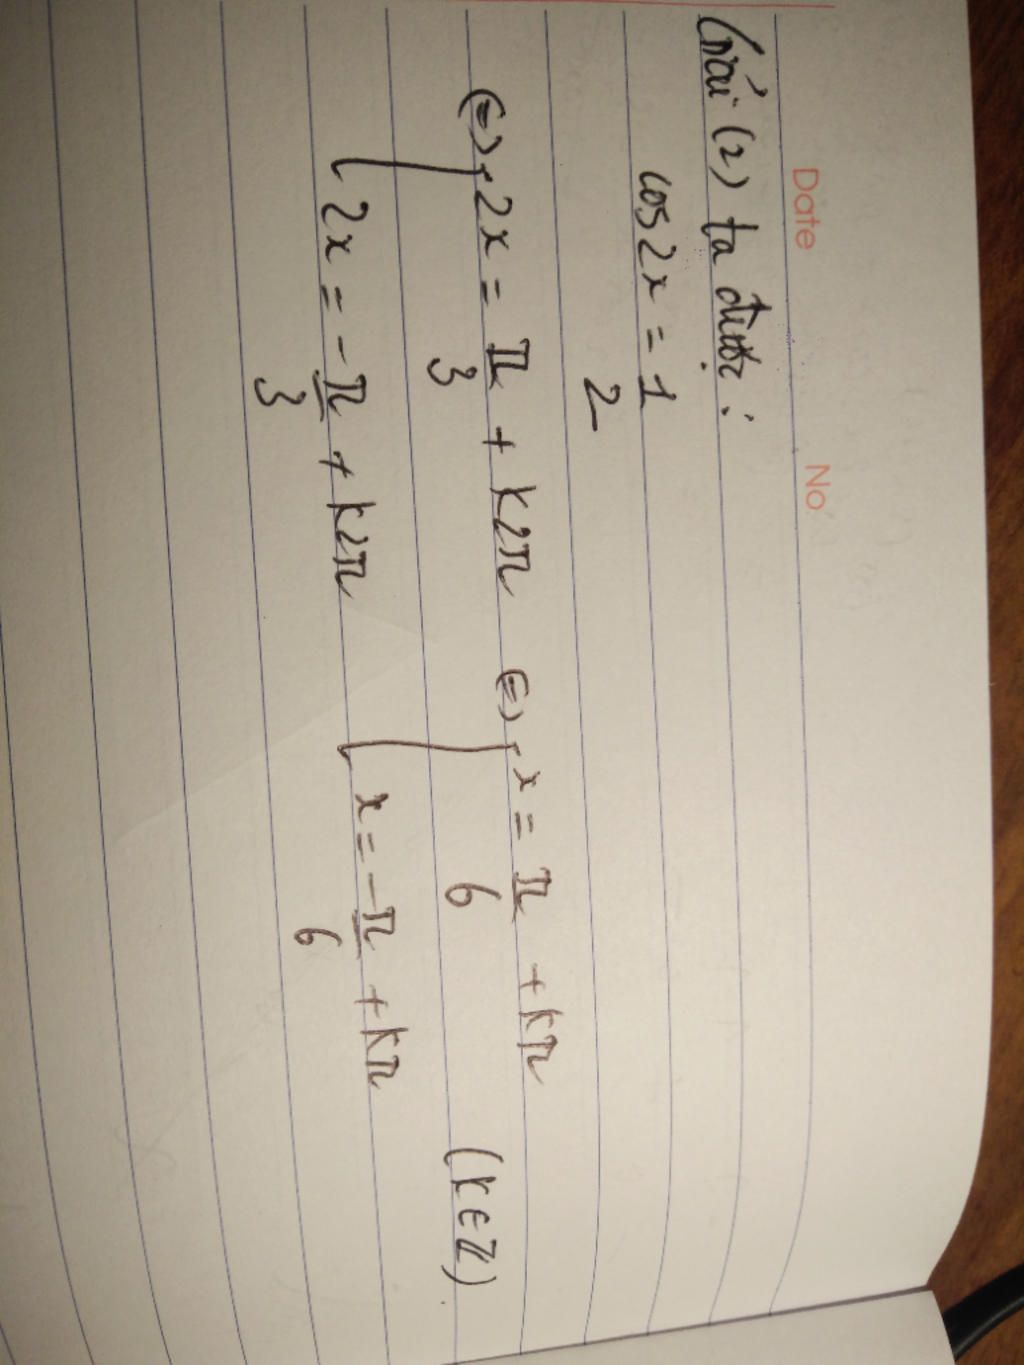 Date No
Giải (2) ta được :
cos2x = 1/2
⇔ [ 2x = π/3 + k2π ⇔ [ x = π/6 + kπ
2x = -π/3 + k2π x = -π/6 + kπ (k ∈ Z)